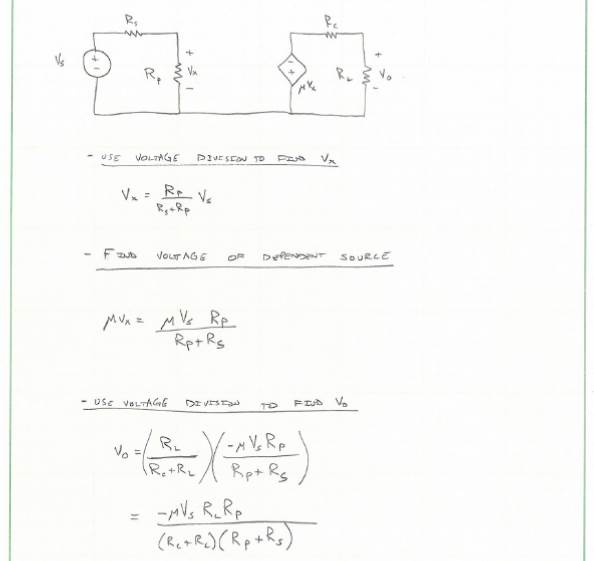 Rs
Rc
Vs
+
-
Rp
+
Vx
-
-
+
μVx
RL
+
Vo
-
- USE VOLTAGE DIVISION TO FIND Vx
Vx = Rp / (Rs+Rp) Vs
- FIND VOLTAGE OF DEPENDENT SOURCE
μVx = μVs Rp / (Rp+Rs)
- USE VOLTAGE DIVISION TO FIND Vo
Vo = (RL / (Rc+RL)) (-μVs Rp / (Rp+Rs))
= -μVs RL Rp / ((Rc+RL)(Rp+Rs))